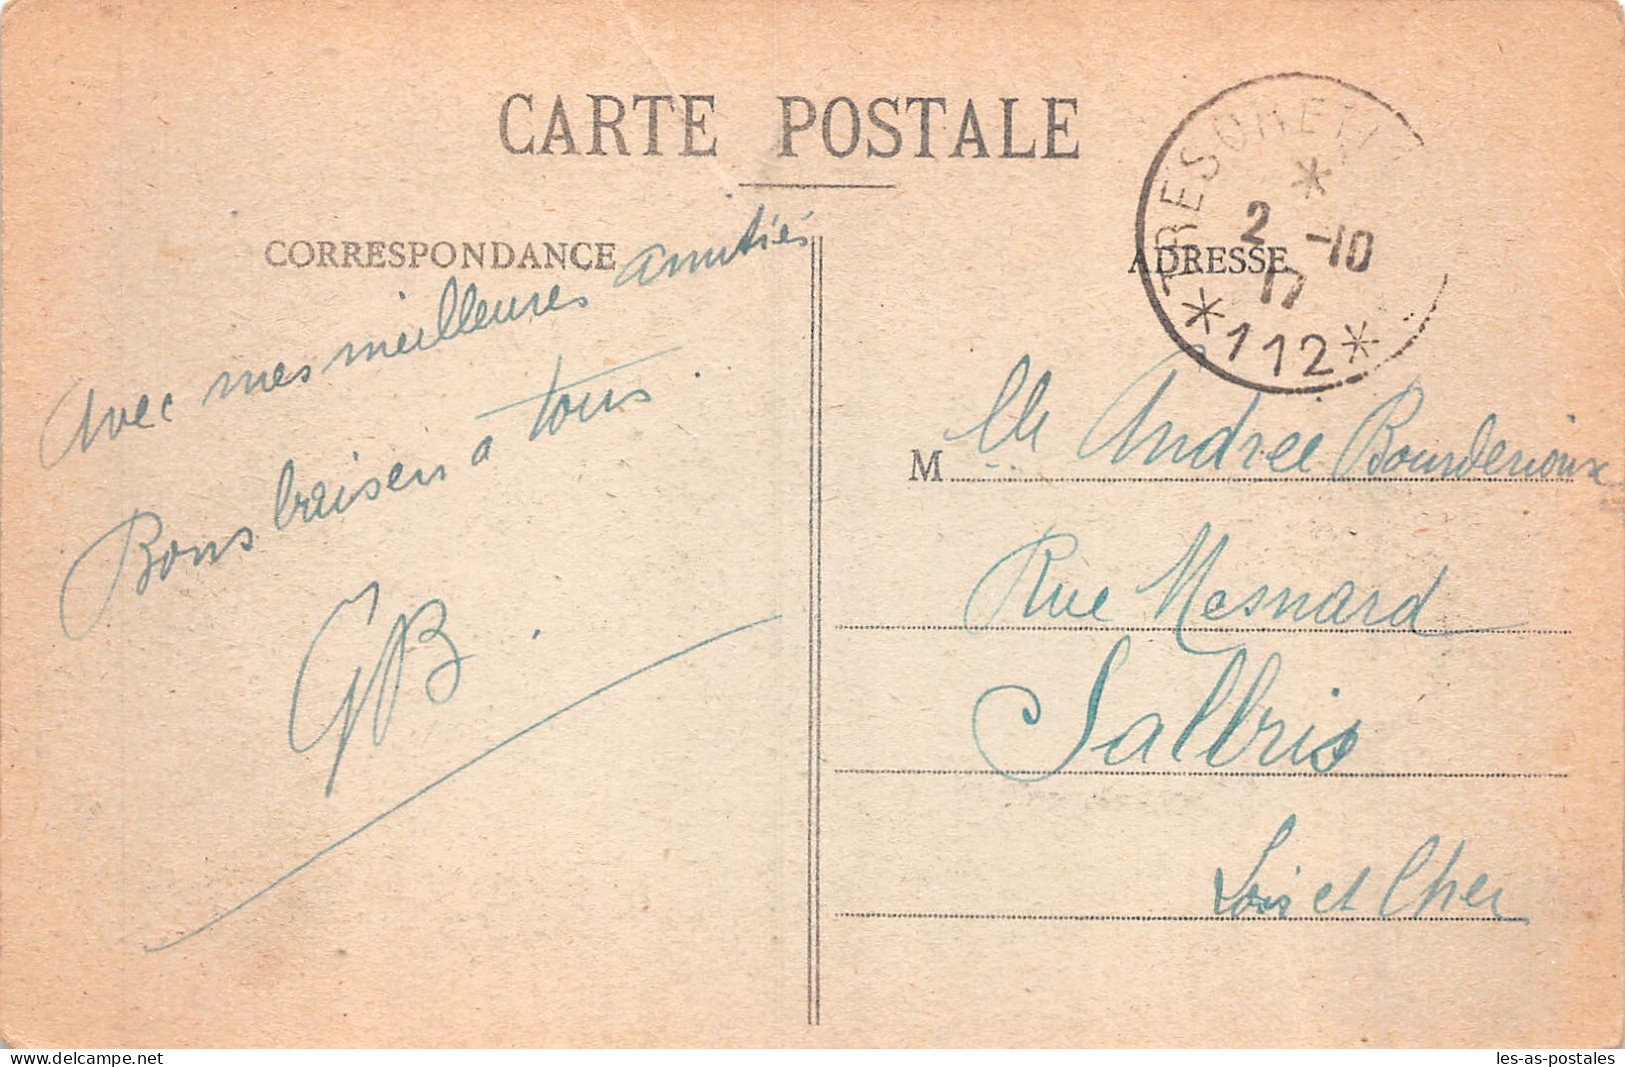 CARTE POSTALE
CORRESPONDANCE
ADRESSE
TRESOR ET
2 -10
17
*112*
Avec mes meilleures amitiés
Bons baisers a tous.
GB.
M lle Andrée Bourderioux
Rue Mesnard
Salbris
Loir et Cher
delcampe.net
les-as-postales